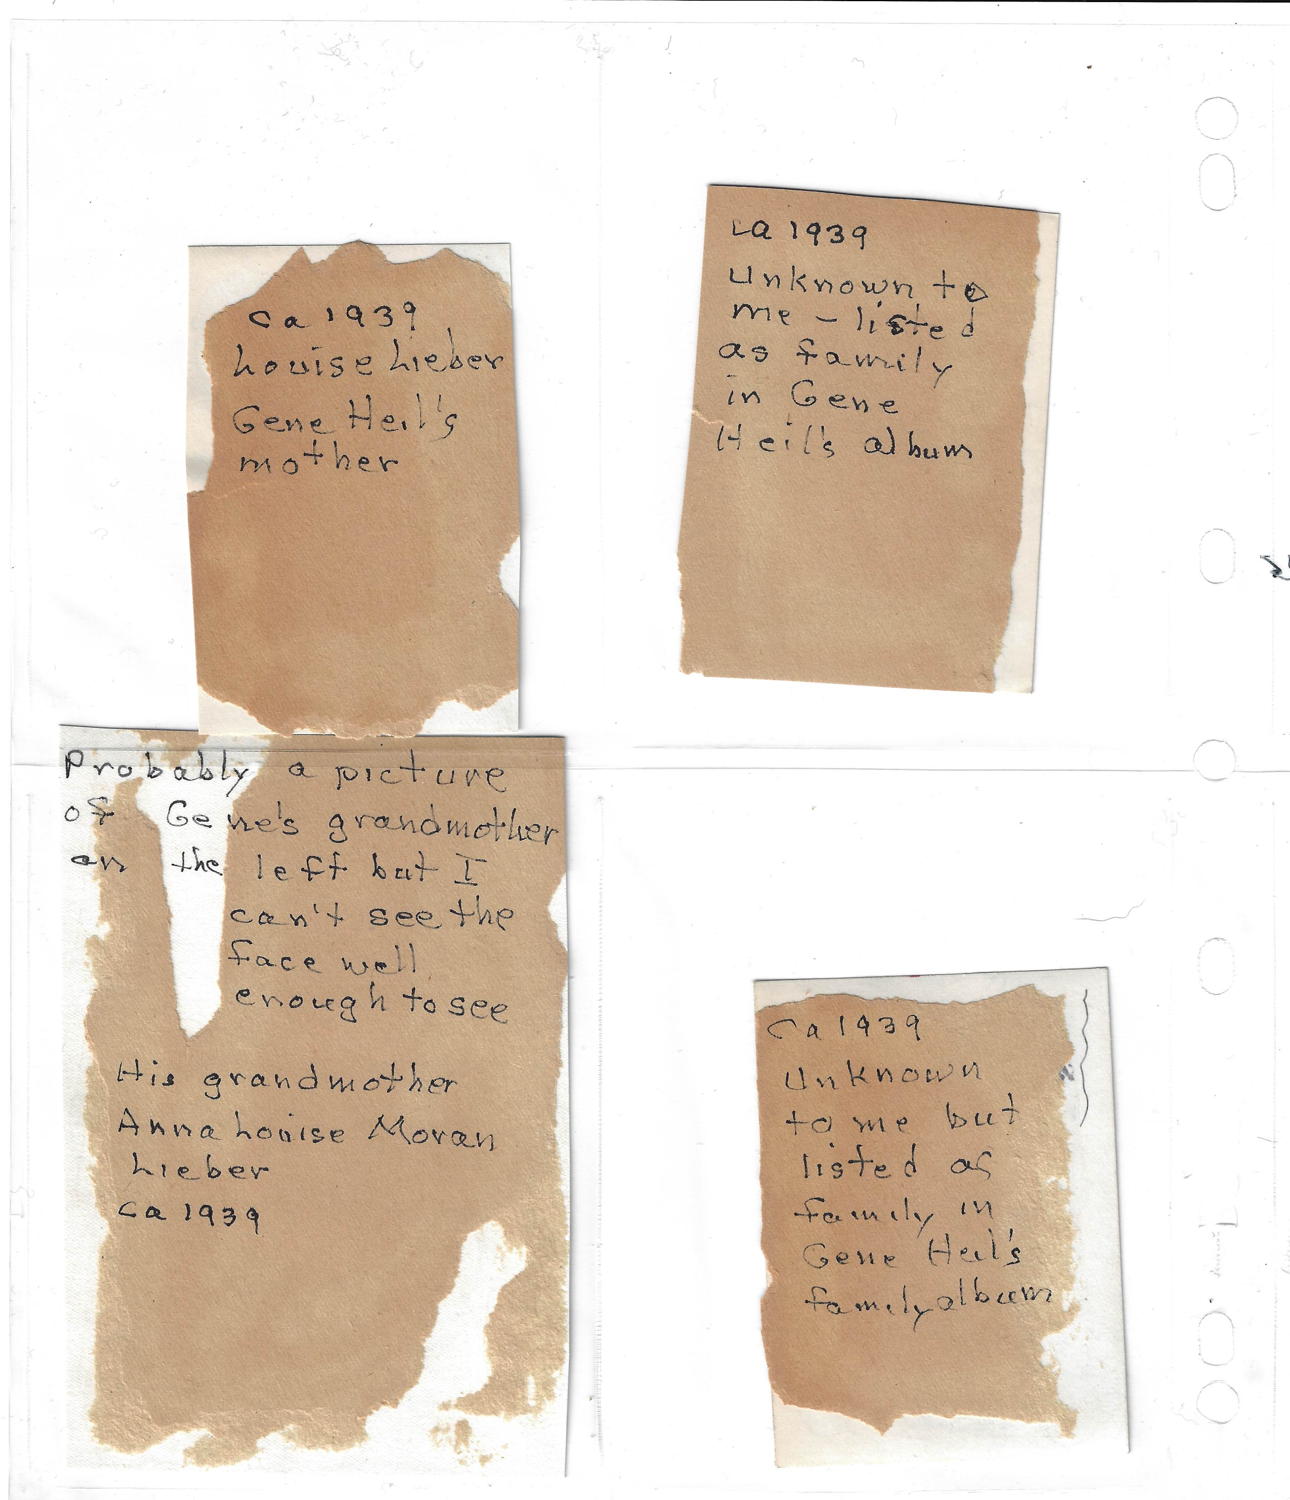 ca 1939
Louise Lieber
Gene Heil's
mother
ca 1939
Unknown to
me – listed
as family
in Gene
Heil's album
Probably a picture
of Gene's grandmother
on the left but I
can't see the
face well
enough to see
His grandmother
Anna Louise Moran
Lieber
ca 1939
Ca 1939
Unknown
to me but
listed as
family in
Gene Heil's
family album